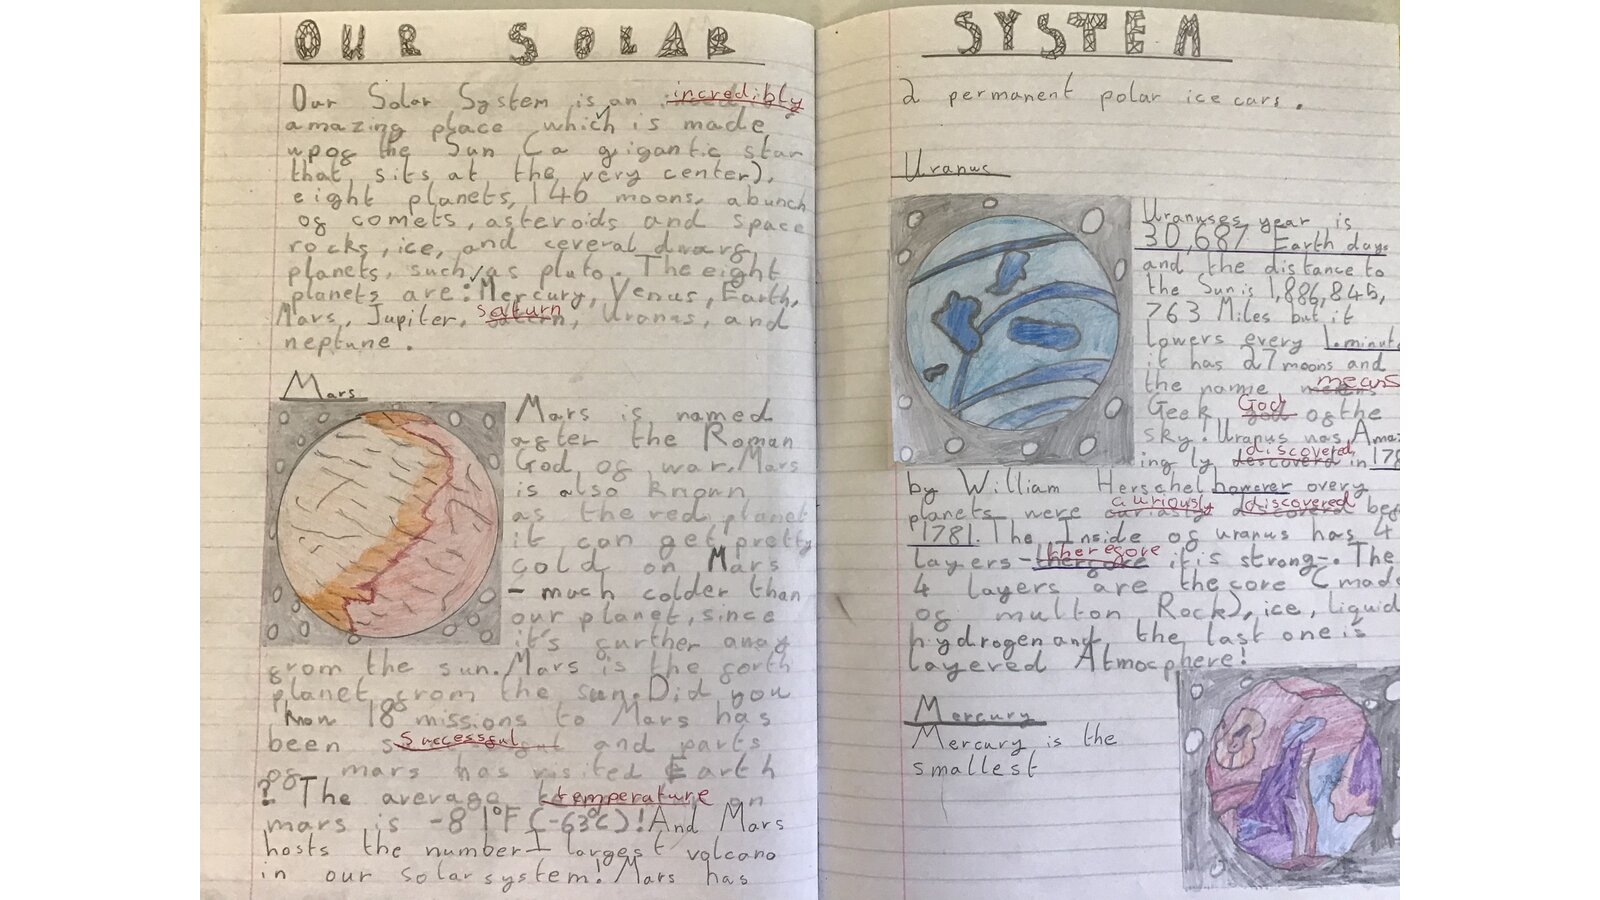 OUR SOLAR SYSTEM
Our Solar System is an incredibly
amazing place which is made
upof the Sun (a gigantic star
that, sits at the very center),
eight planets, 146 moons, a bunch
of comets, asteroids and space
rocks, ice, and ceveral dwarf
planets, such as pluto. The eight
planets are: Mercury, Venus, Earth,
Mars, Jupiter, saturn, Uranus, and
neptune.
Mars
Mars is named
after the Roman
God of war. Mars
is also known
as the red planet
it can get pretty
cold on Mars
- much colder than
our planet, since
it's further away
from the sun. Mars is the forth
planet from the sun. Did you
know 18 missions to Mars has
been successful and parts
of mars has visited Earth
? The average temperature on
mars is -81°F (-63°C)! And Mars
hosts the number 1 largest volcano
in our solar system! Mars has
2 permanent polar ice cars.
Uranus
Uranuses year is
30,687 Earth days
and the distance to
the Sun is 1,886,845,
763 Miles but it
lowers every 1.minut
it has 27 moons and
the name means
Geek God of the
sky! Uranus was Ama
ing ly discovered in 178
by William Herschel however overy
planets were curiously discovered bef
1781. The Inside of uranus has 4
layers - therefore it is strong-. The
4 layers are the core (made
of multon Rock), ice, liquid
hydrogen and the last one is
layered Atmocphere!
Mercury
Mercury is the
smallest